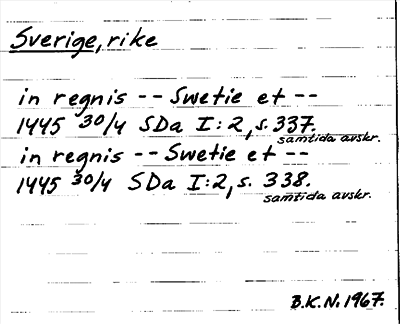 Sverige, rike
in regnis -- Swetie et --
1445 30/4 SDa I:2, s. 337.
samtida avskr.
in regnis -- Swetie et --
1445 30/4 SDa I:2, s. 338.
samtida avskr.
B.K.N. 1967.